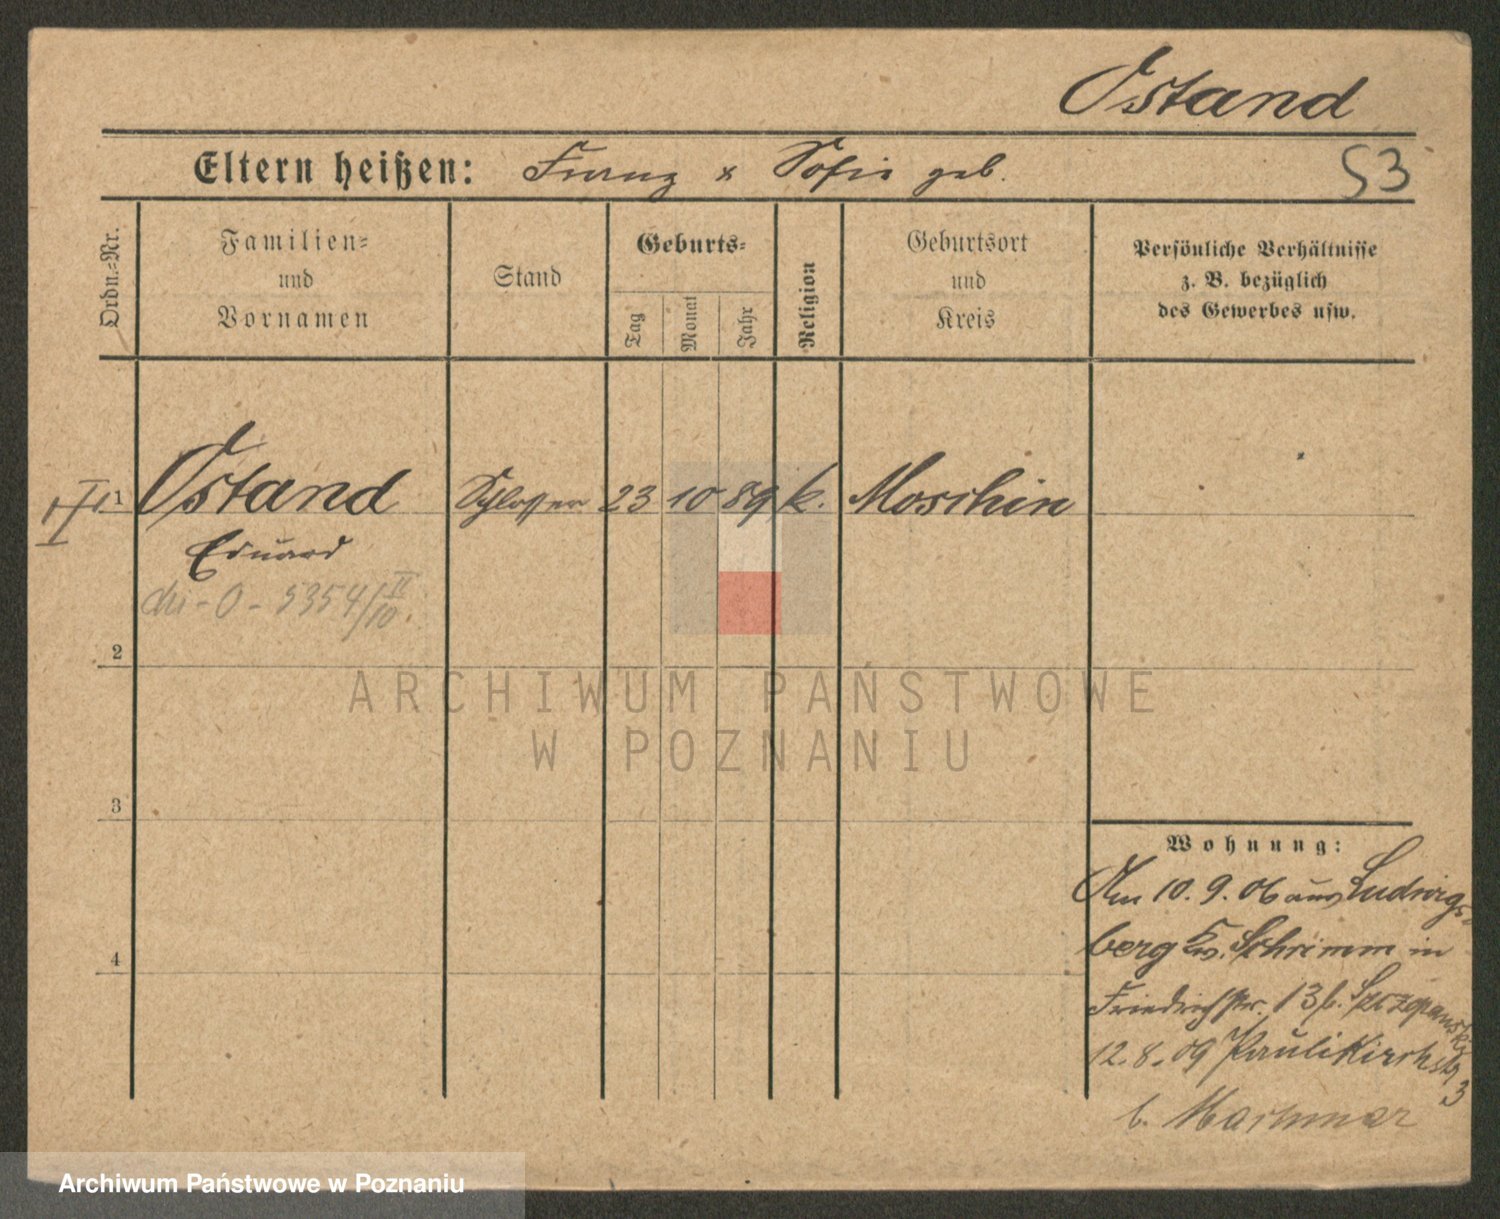 Ostand
Eltern heißen: Franz & Sofie geb.
53
Ordn.-Nr.
Familien-
und
Vornamen
Stand
Geburts-
Tag
Monat
Jahr
Religion
Geburtsort
und
Kreis
Persönliche Verhältnisse
z. B. bezüglich
des Gewerbes usw.
1 Ostand Schlosser 23 10 89 k. Moschin
Eduard
- O - 5354/IV 10
2
ARCHIWUM PAŃSTWOWE
W POZNANIU
3
Wohnung:
Am 10. 9. 06 aus Ludwigs-
berg Kr. Schrimm in
Friedrichstr. 13 b. Szczepanski
12. 8. 09 Paulikirchstr
3
b.
4
Archiwum Państwowe w Poznaniu